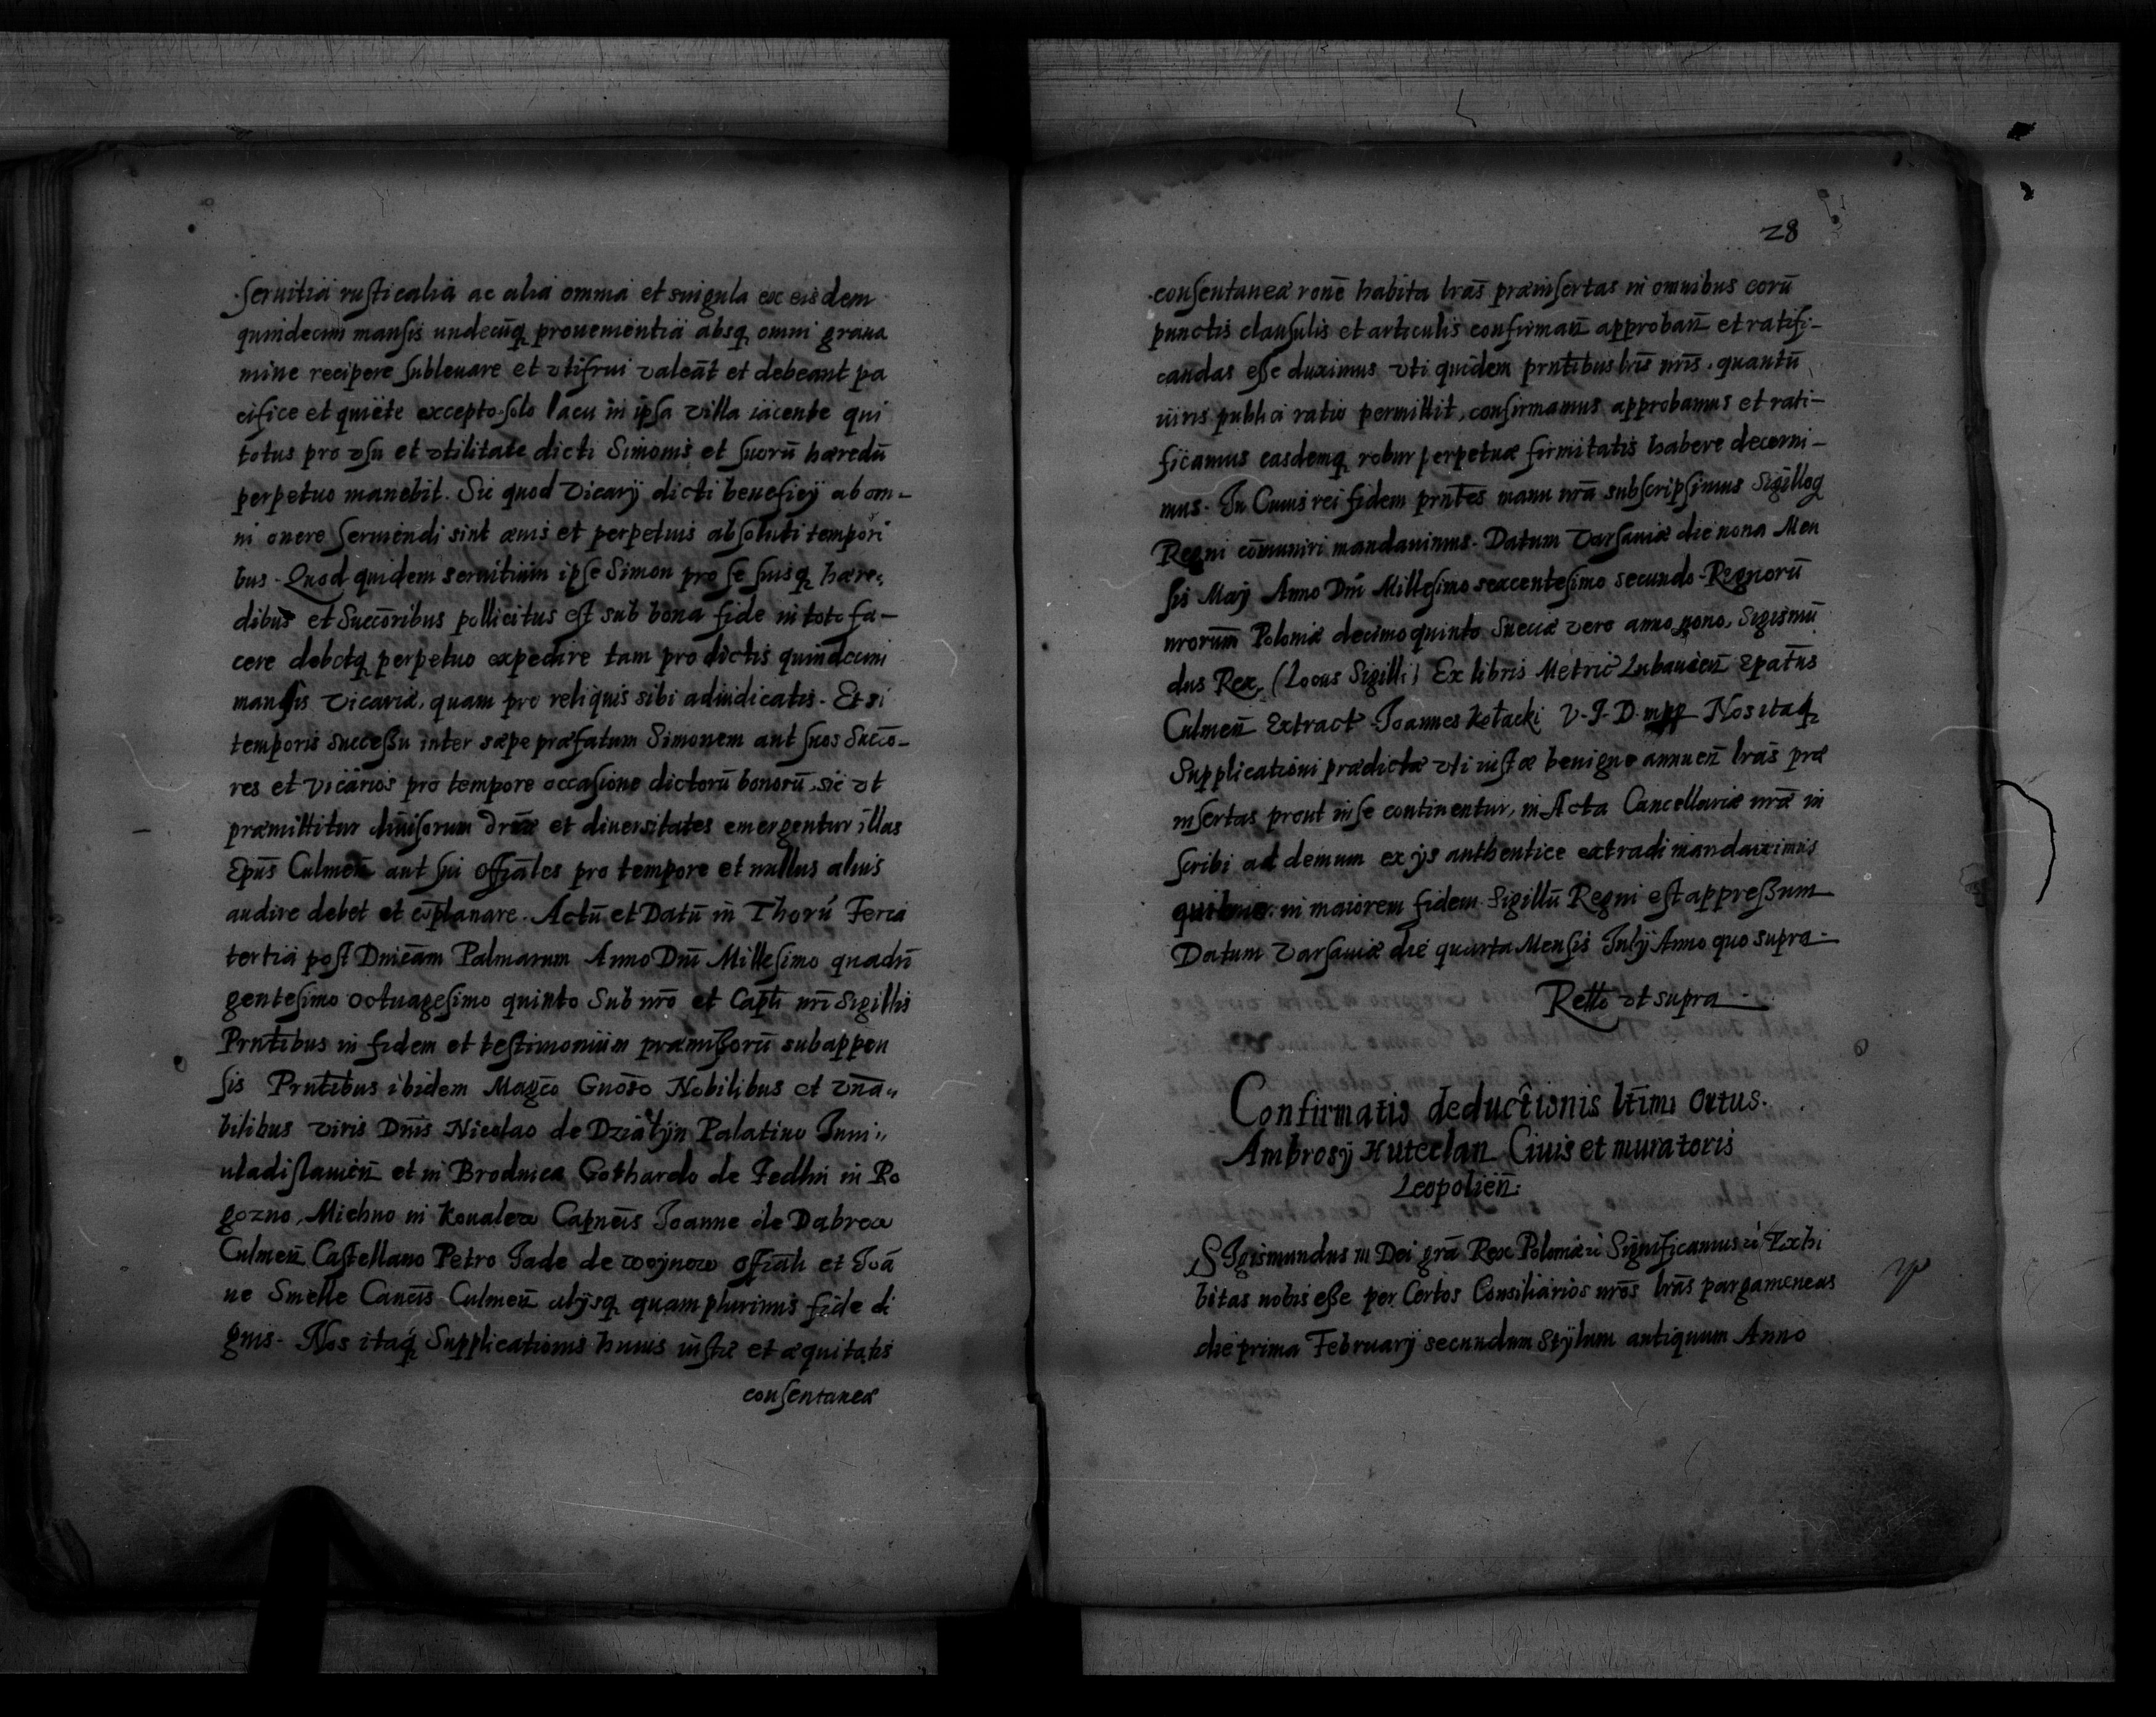 seruitia rusticalia ac alia omnia et singula ex eisdem
quindecim mansis undecūq prouenientia absq omni graua
mine recipere subleuare et vtifrui valeāt et debeant pa
cifice et quiete excepto solo lacu in ipsa villa iacente qui
totus pro vsu et vtilitate dicti Simonis et suorū hæredū
perpetuo manebit. Sic quod Vicarij dicti beneficij ab om-
ni onere seruiendi sint æuis et perpetuis absoluti tempori
bus. Quod quidem seruitium ipse Simon pro se suisq hære,
dibus et Succōribus pollicitus est sub bona fide in toto fa-
cere debetq perpetuo expedire tam pro dictis quindecim
mansis Vicariæ, quam pro reliquis sibi adiudicatis. Et si
temporis successu inter sæpe præfatum Simonem aut suos Succō-
res et Vicarios pro tempore occasione dictorū bonorū, sic vt
præmittitur diuisorum et diuersitates emergentur illas
Epūs Culmen̄ aut sui offiāles pro tempore et nullus alius
audire debet et explanare. Actū et Datū in Thorū Feria
tertia post Dnicām Palmarum Anno Dnī Millesimo quadrī
gentesimo octuagesimo quinto Sub nr̄o et Caplī nr̄i Sigillis
Prnt̄ibus in fidem et testimonium præmissorū subappen
sis Prnt̄ibus ibidem Magco Gnoso Nobilibus et vn̄a,,
bilibus viris Dn̄is Nicolao de Dzialÿn Palatino Juni,,
uladislauien̄ et in Brodnica Gothardo de Fedlin in Ro
gozno, Michno in Koualew Capneis Joanne de Dabrow
Culmen̄ Castellano Petro Jade de woÿnow offiāli et Joā
ne Smelle Canc̄is Culmen̄ alijsq quam plurimis fide di
gnis. Nos itaq Supplicationis huius iustæ et æquitatis
consentaneæ
28
consentaneæ ronē habita lrās præinsertas in omnibus eorū
punctis clausulis et articulis confirman̄ approban̄ et ratifi-
candas esse duximus vti quidem prntibus lrīs nrīs, quantū
iuris publici ratio permittit, confirmamus approbamus et rati-
ficamus easdemq robur perpetuæ firmitatis habere decerni-
mus. In Cuius rei fidem prntēs manu nrā subscripsimus Sigilloq
Regni cōmuniri mandauimus. Datum Varsauiæ die nona Men
sis Maij Anno Dnī Millesimo sexcentesimo secundo. Regnorū
nrorum Poloniæ decimo quinto Sueciæ vero anno nono. Sigismū
dus Rex. (Locus Sigilli) Ex libris Metric Lubauien̄ Epatus
Culmen̄ Extract Joannes Kełacki V. J. D. mpp Nos itaq
Supplicationi prædictæ vti iustæ benigne annuen̄ lrās præ
insertas prout in se continentur, in Acta Cancellariæ nræ in
scribi ac demum ex ijs authentice extradi mandauimus
quibus. in maiorem fidem Sigillū Regni est appressum
Datum Varsauiæ die quarta Mensis Julij Anno quo supra.
Rettō vt supra
Confirmatio deductionis ltīmi Ortus.
Ambrosÿ Hutedan Ciuis et muratoris
Leopolien̄.
SIgismundus III Dei grā Rex Poloniæ ic̄ Significamus ic̄ Exhi
bitas nobis esse per Certos Consiliarios nrōs lrās pargameneas
die prima Februarÿ secundum stÿlum antiquum Anno